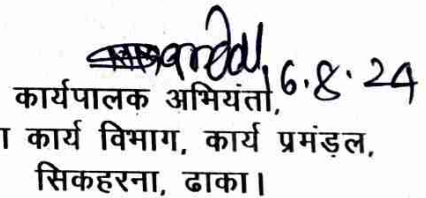 6.8.24
कार्यपालक अभियंता,
कार्य विभाग, कार्य प्रमंड़ल,
सिकहरना, ढाका।